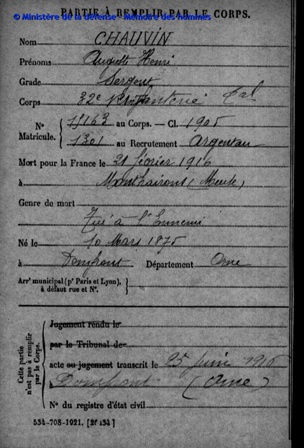 © Ministère de la défense - Mémoire des hommes
PARTIE À REMPLIR PAR LE CORPS.
Nom CHAUVIN
Prénoms Auguste Henri
Grade Sergent
Corps 32e d'Infanterie Cal
N° Matricule. 15163 au Corps. — Cl. 1905
1301 au Recrutement Argentan
Mort pour la France le 21 février 1916
à Monthairons (Meuse)
Genre de mort
Tué à l'Ennemi
Né le 10 Mars 1875
à Domfront Département Orne
Arrt municipal (pr Paris et Lyon), à défaut rue et N°.
Cette partie n'est pas à remplir par le Corps.
Jugement rendu le
par le Tribunal de
acte ou jugement transcrit le 25 Juin 1916
à Domfront (Orne)
N° du registre d'état civil
534-708-1921. [26434]